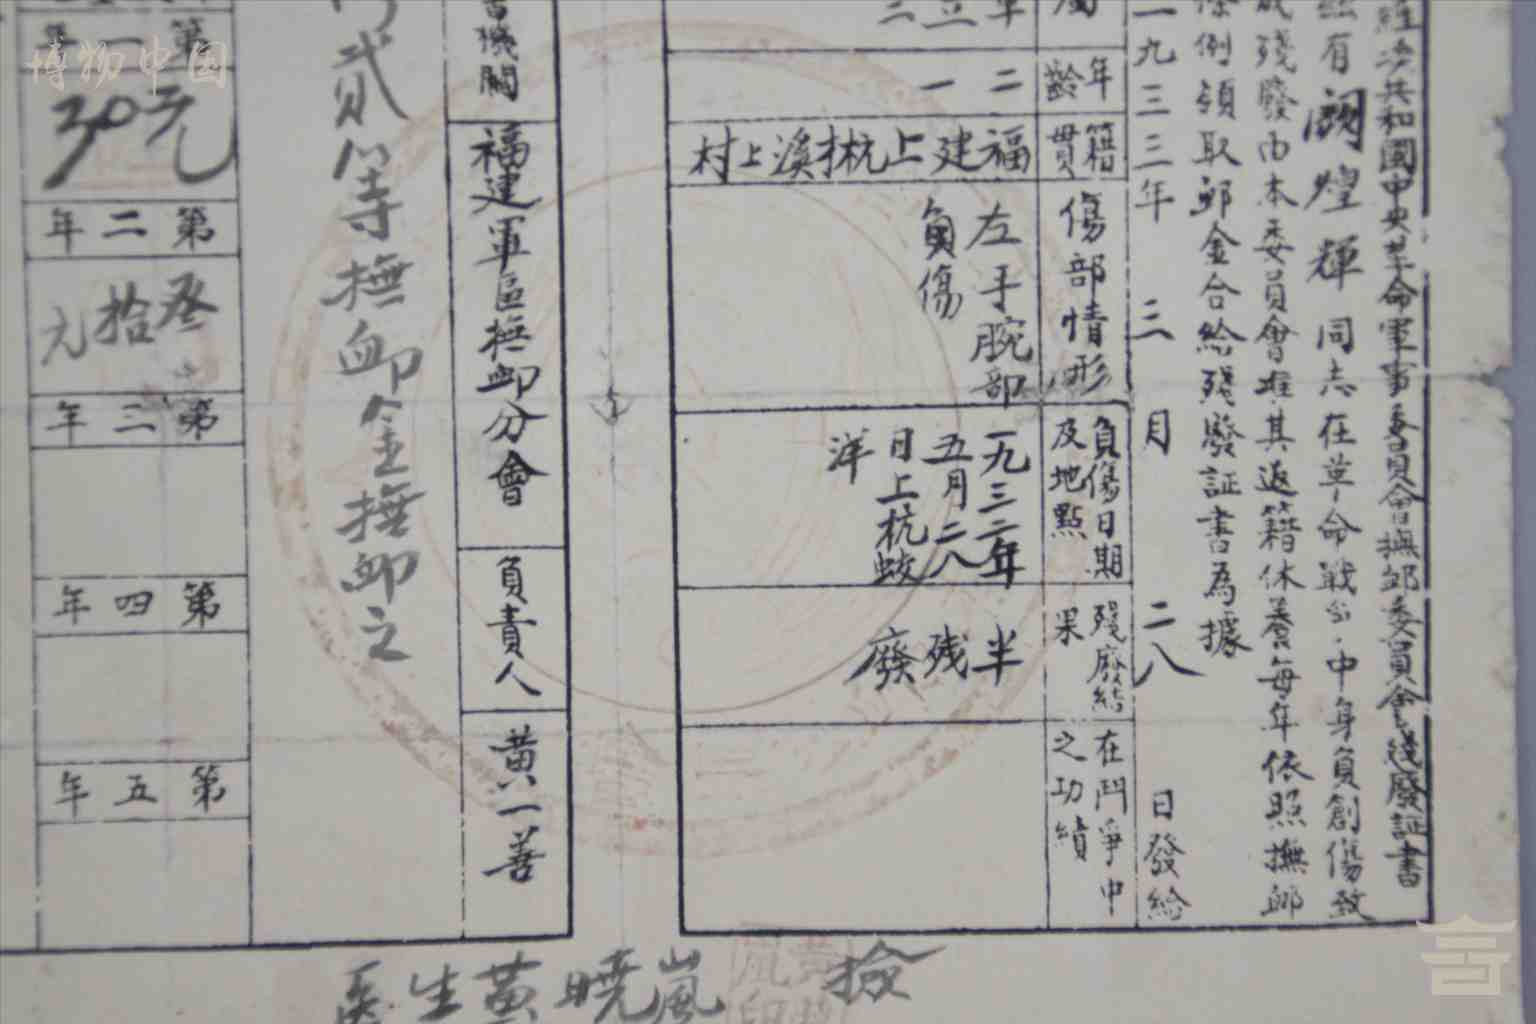 經濟共和國中央革命軍事委員會撫卹委員會殘廢証書
有闕煌輝同志在革命戰爭中身負創傷致
成殘廢由本委員會准其返籍休養每年依照撫卹
條例領取卹金合給殘廢証書為據
一九三三年三月二八日發給
年齡
二一
籍貫
福建上杭溪上村
傷部情形
左手腕部
負傷
負傷日期
及地點
一九三二年
五月二八
日上杭蛟
洋
殘廢結
果
半殘廢
在鬥爭中
之功績
機關
福建軍區撫卹分會
負責人
黃一善
貳等撫卹金撫卹之
第一年
30元
第二年
叁拾元
第三年
第四年
第五年
醫生黃曉嵐
檢
博物中国